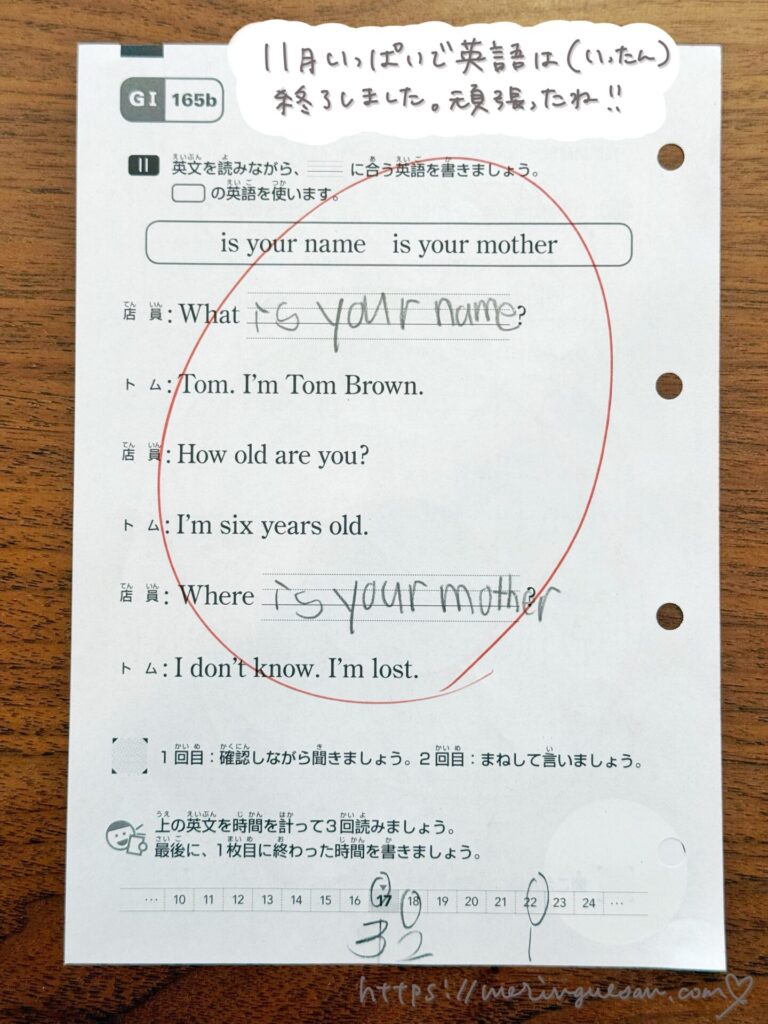 11月いっぱいで英語は(いったん)
終了しました。頑張ったね!!
GI 165b
II 英文を読みながら、 に合う英語を書きましょう。
の英語を使います。
is your name is your mother
店員: What is your name?
トム: Tom. I'm Tom Brown.
店員: How old are you?
トム: I'm six years old.
店員: Where is your mother?
トム: I don't know. I'm lost.
1回目:確認しながら聞きましょう。2回目:まねして言いましょう。
上の英文を時間を計って3回読みましょう。
最後に、1枚目に終わった時間を書きましょう。
… 10 11 12 13 14 15 16 17 18 19 20 21 22 23 24 …
3 2 1
https://meringuesan.com